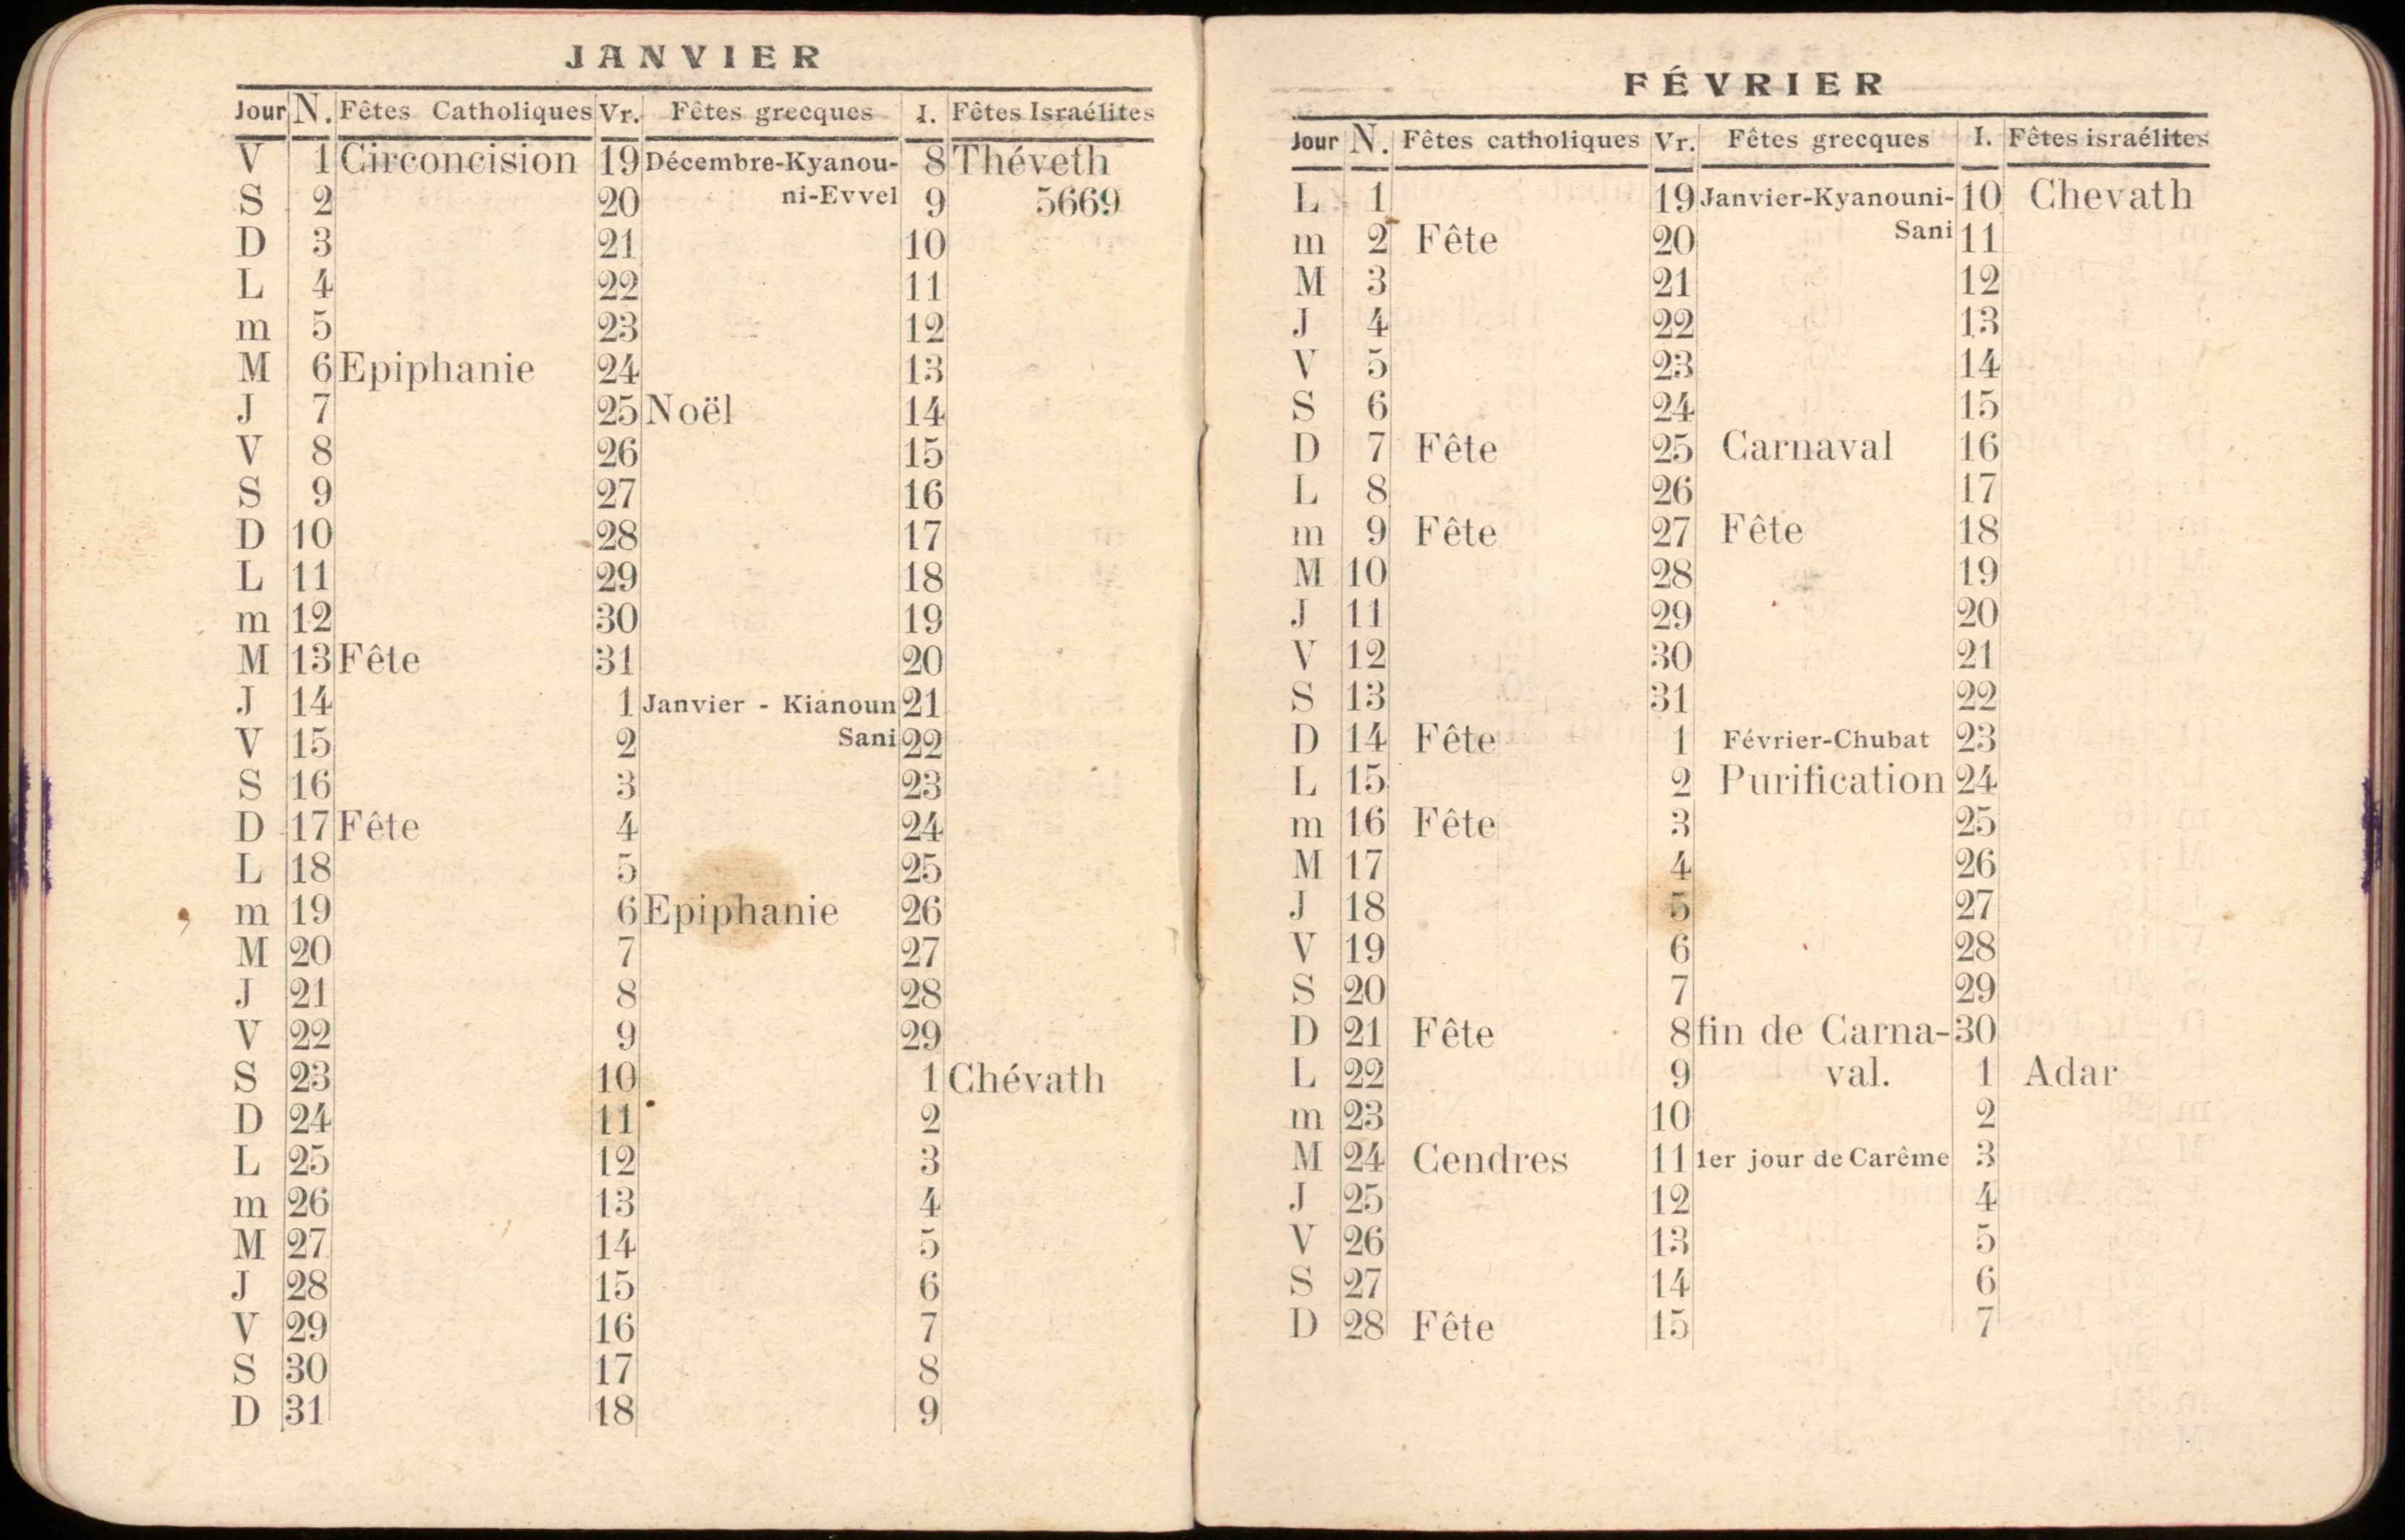 JANVIER
Jour N. Fêtes Catholiques Vr. Fêtes grecques I. Fêtes Israélites
V 1 Circoncision 19 Décembre-Kyanou- 8 Théveth
S 2 20 ni-Evvel 9 5669
D 3 21 10
L 4 22 11
m 5 23 12
M 6 Epiphanie 24 13
J 7 25 Noël 14
V 8 26 15
S 9 27 16
D 10 28 17
L 11 29 18
m 12 30 19
M 13 Fête 31 20
J 14 1 Janvier - Kianoun 21
V 15 2 Sani 22
S 16 3 23
D 17 Fête 4 24
L 18 5 25
m 19 6 Epiphanie 26
M 20 7 27
J 21 8 28
V 22 9 29
S 23 10 1 Chévath
D 24 11 2
L 25 12 3
m 26 13 4
M 27 14 5
J 28 15 6
V 29 16 7
S 30 17 8
D 31 18 9
FÉVRIER
Jour N. Fêtes catholiques Vr. Fêtes grecques I. Fêtes israélites
L 1 19 Janvier-Kyanouni- 10 Chevath
m 2 Fête 20 Sani 11
M 3 21 12
J 4 22 13
V 5 23 14
S 6 24 15
D 7 Fête 25 Carnaval 16
L 8 26 17
m 9 Fête 27 Fête 18
M 10 28 19
J 11 29 20
V 12 30 21
S 13 31 22
D 14 Fête 1 Février-Chubat 23
L 15 2 Purification 24
m 16 Fête 3 25
M 17 4 26
J 18 5 27
V 19 6 28
S 20 7 29
D 21 Fête 8 fin de Carna- 30
L 22 9 val. 1 Adar
m 23 10 2
M 24 Cendres 11 1er jour de Carême 3
J 25 12 4
V 26 13 5
S 27 14 6
D 28 Fête 15 7